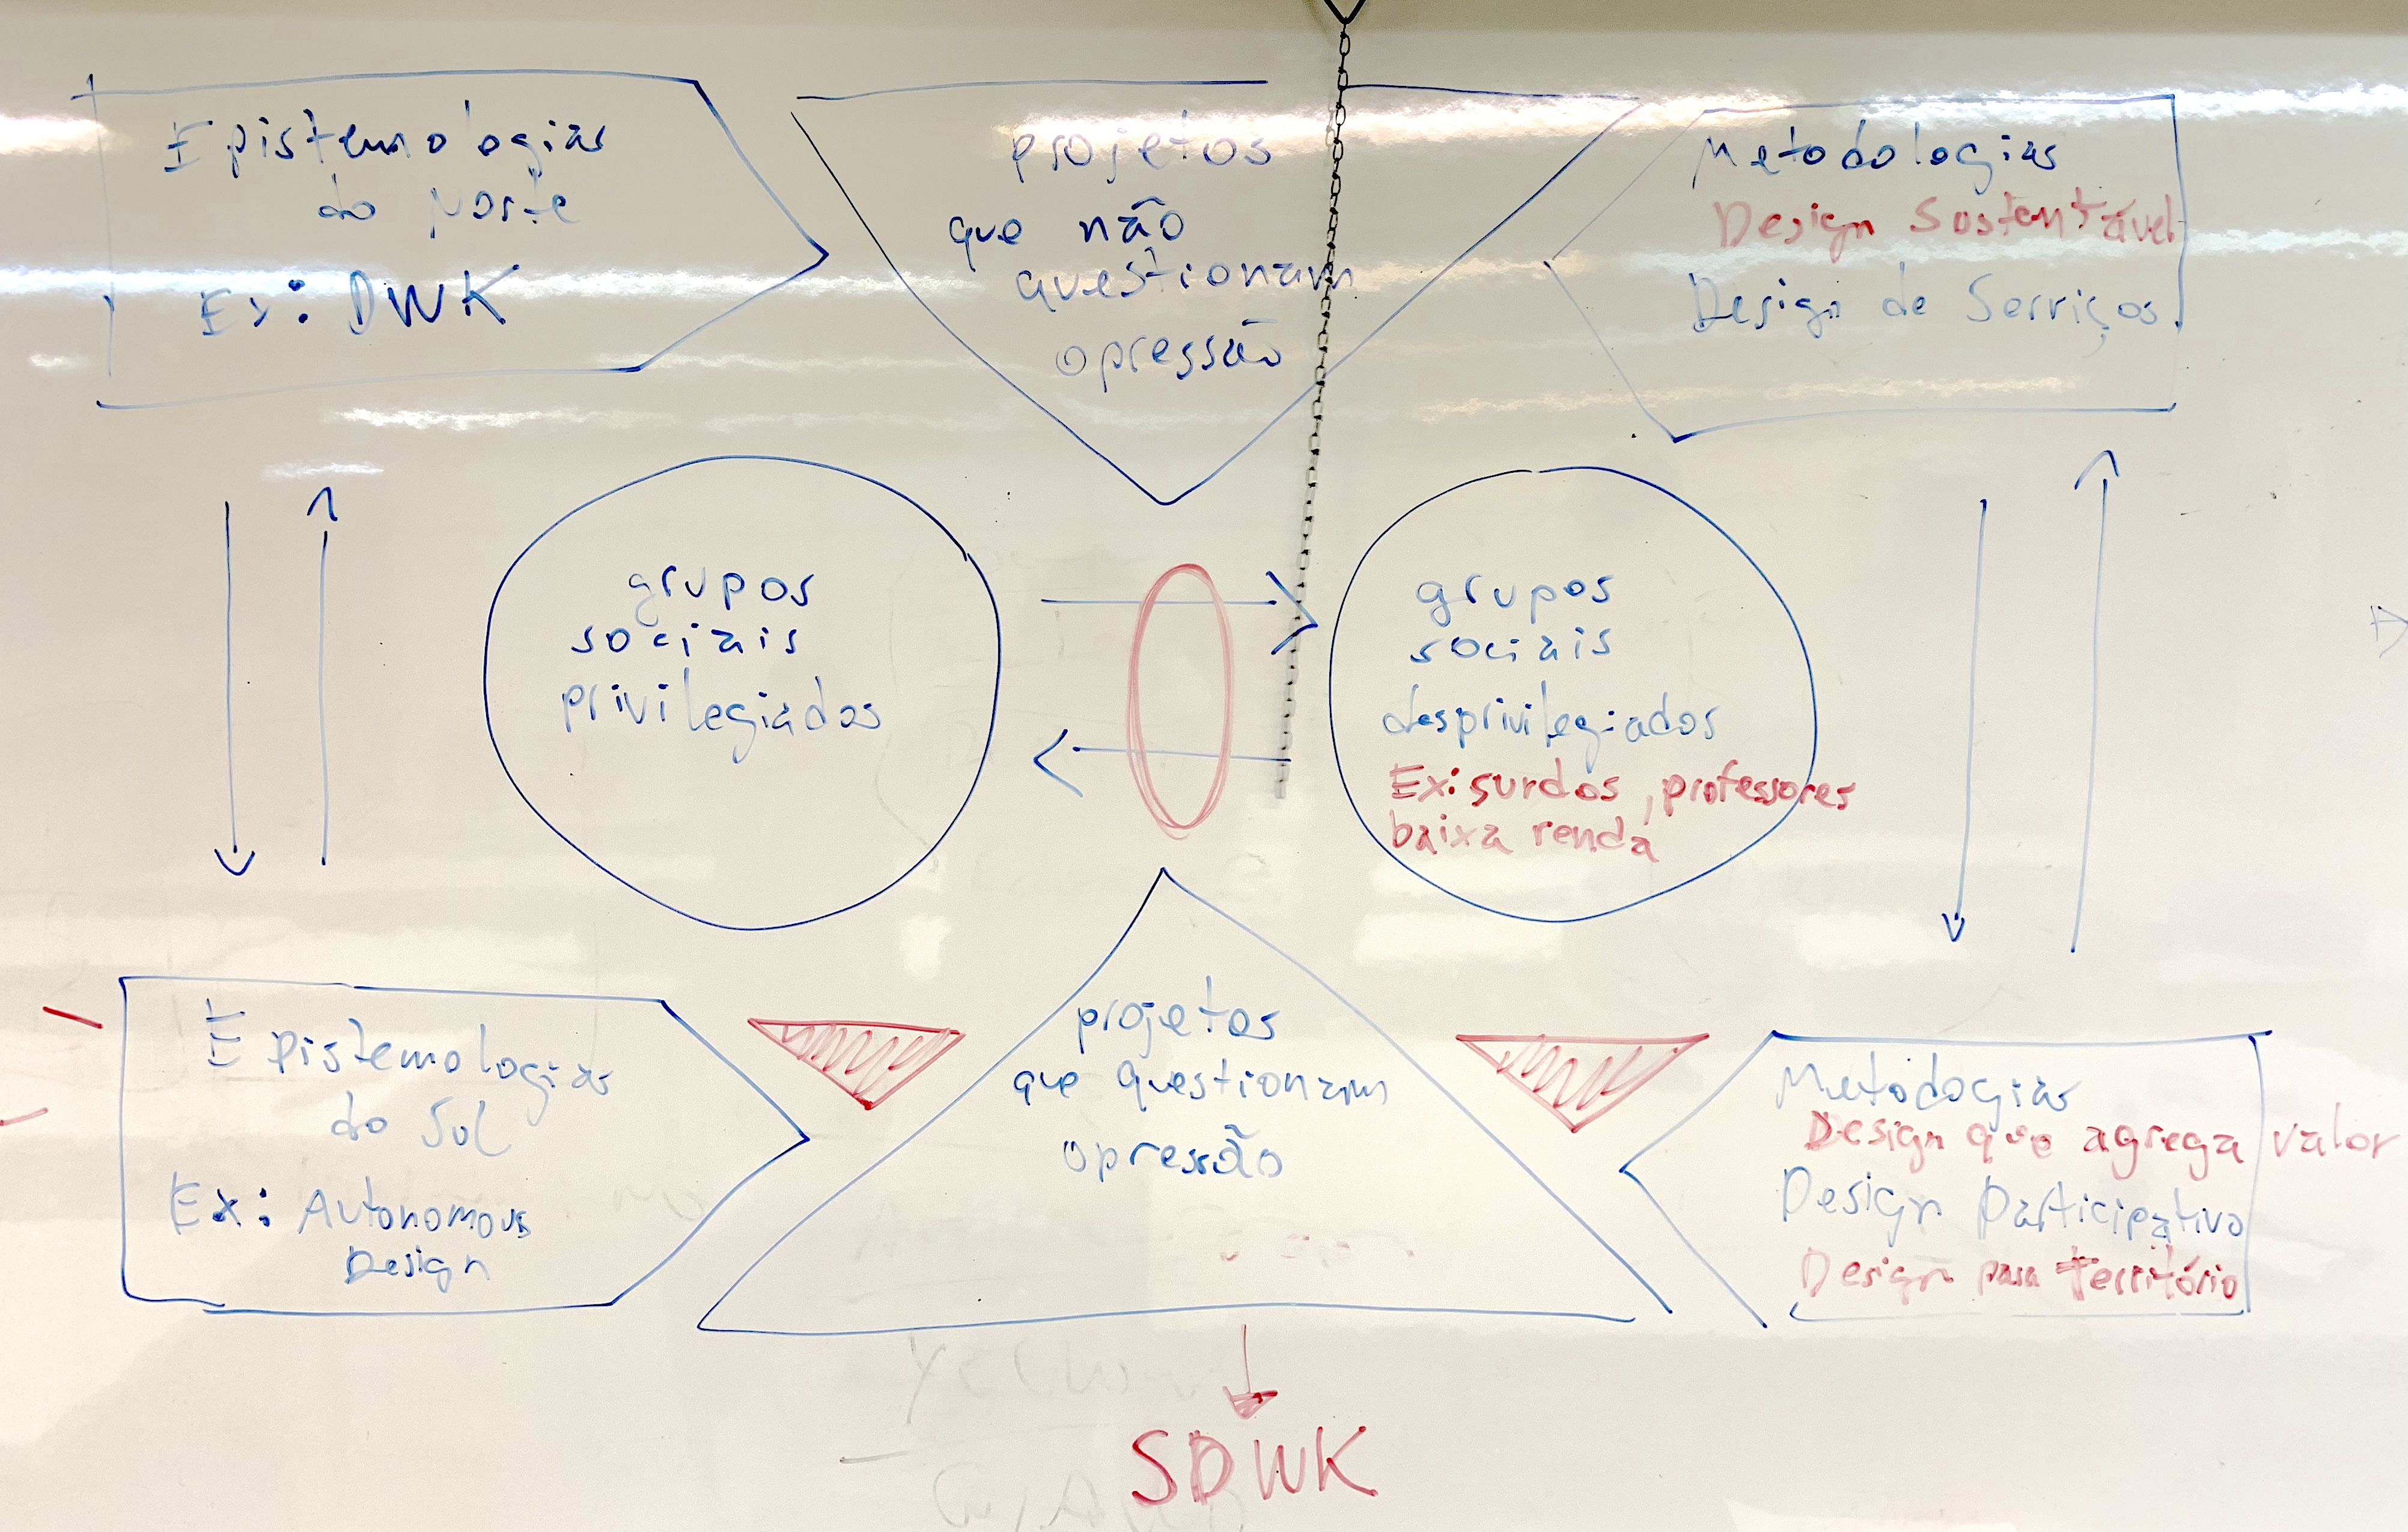 Epistemologias
do Norte
Ex: DWK
projetos
que não
questionam
opressão
Metodologias
Design Sustentável
Design de Serviços
grupos
sociais
privilegiados
grupos
sociais
desprivilegiados
Ex: surdos, professores
baixa renda
Epistemologias
do Sul
Ex: Autonomous
Design
projetos
que questionam
opressão
Metodogias
Design que agrega valor
Design Participativo
Design para território
SDWK